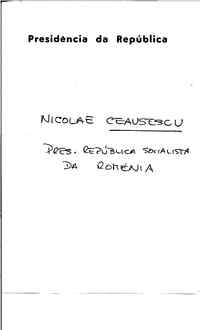 Presidência da República
NICOLAE CEAUSESCU
PRES. REPÚBLICA SOCIALISTA
DA ROMÉNIA